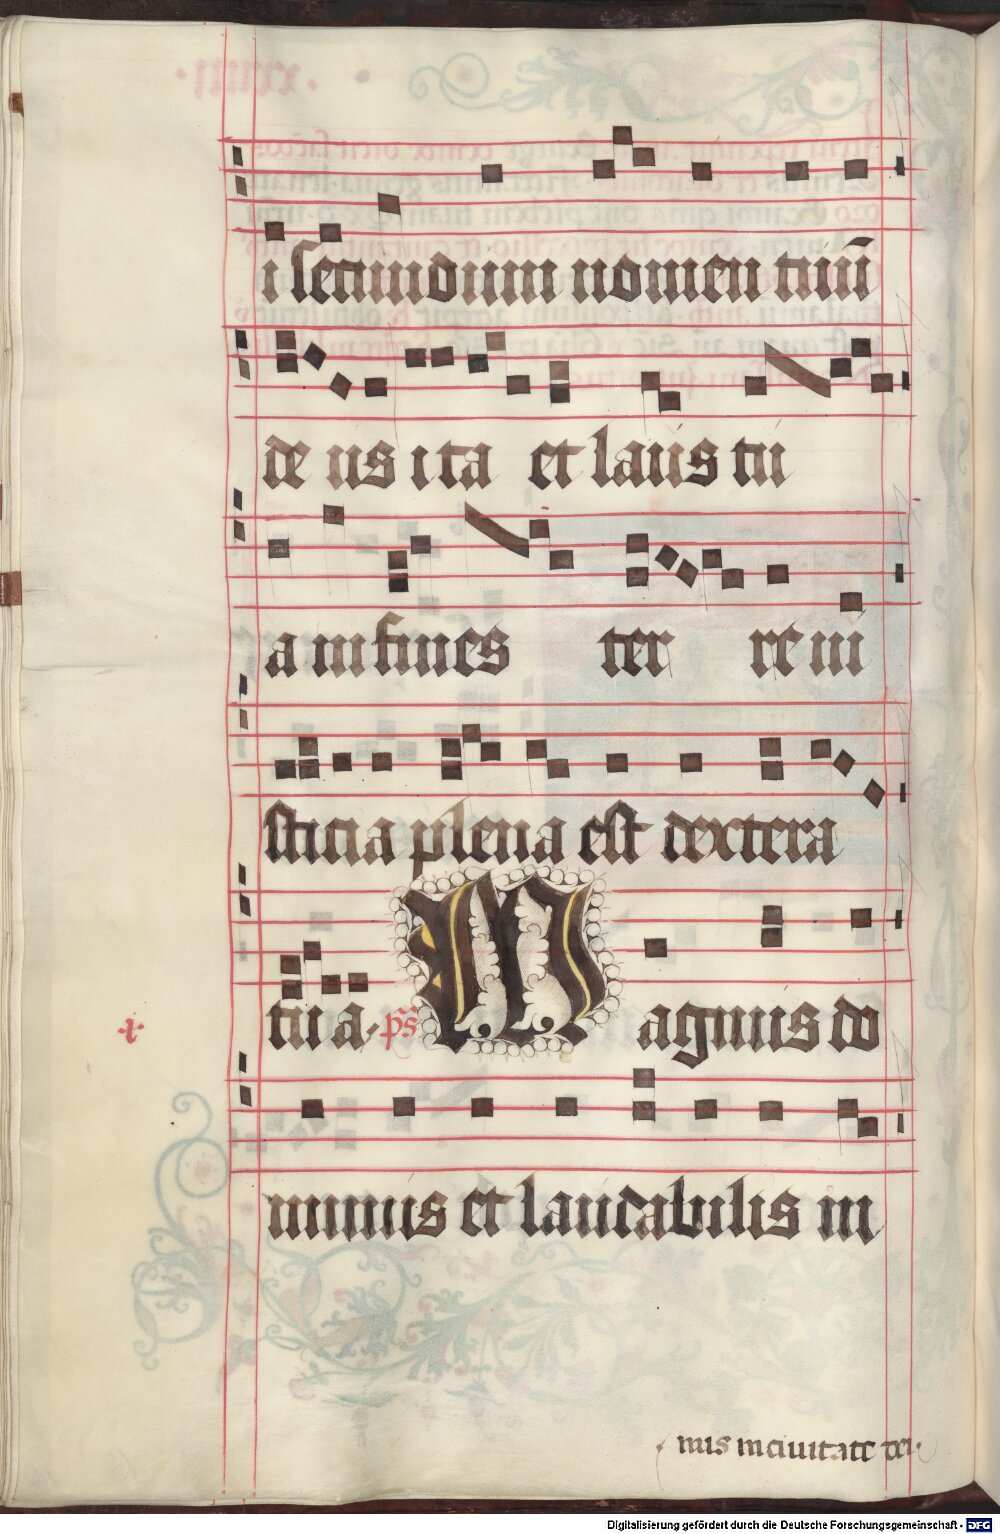 i secundum nomen tuū
de us ita et laus tu
a in fines ter re iu
sticia plena est dextera
tu a. p̄s̄ Magnus do
minus et laudabilis in
nus in civitate dei.
x
Digitalisierung gefördert durch die Deutsche Forschungsgemeinschaft - DFG